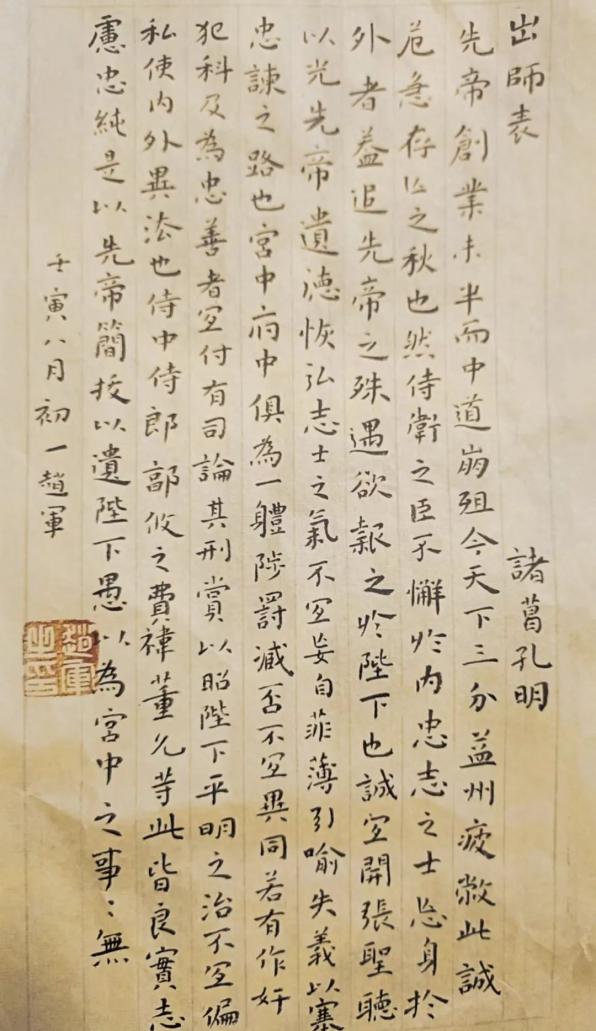 出師表 諸葛孔明
先帝創業未半而中道崩殂今天下三分益州疲敝此誠
危急存亡之秋也然侍衛之臣不懈於內忠志之士忘身於
外者蓋追先帝之殊遇欲報之於陛下也誠宜開張聖聽
以光先帝遺德恢弘志士之氣不宜妄自菲薄引喻失義以塞
忠諫之路也宮中府中俱為一體陟罰減否不宜異同若有作奸
犯科及為忠善者宜付有司論其刑賞以昭陛下平明之治不宜偏
私使內外異法也侍中侍郎郭攸之費禕董允等此皆良實志
慮忠純是以先帝簡拔以遺陛下愚以為宮中之事〻無
壬寅八月初一趙軍
趙軍之印